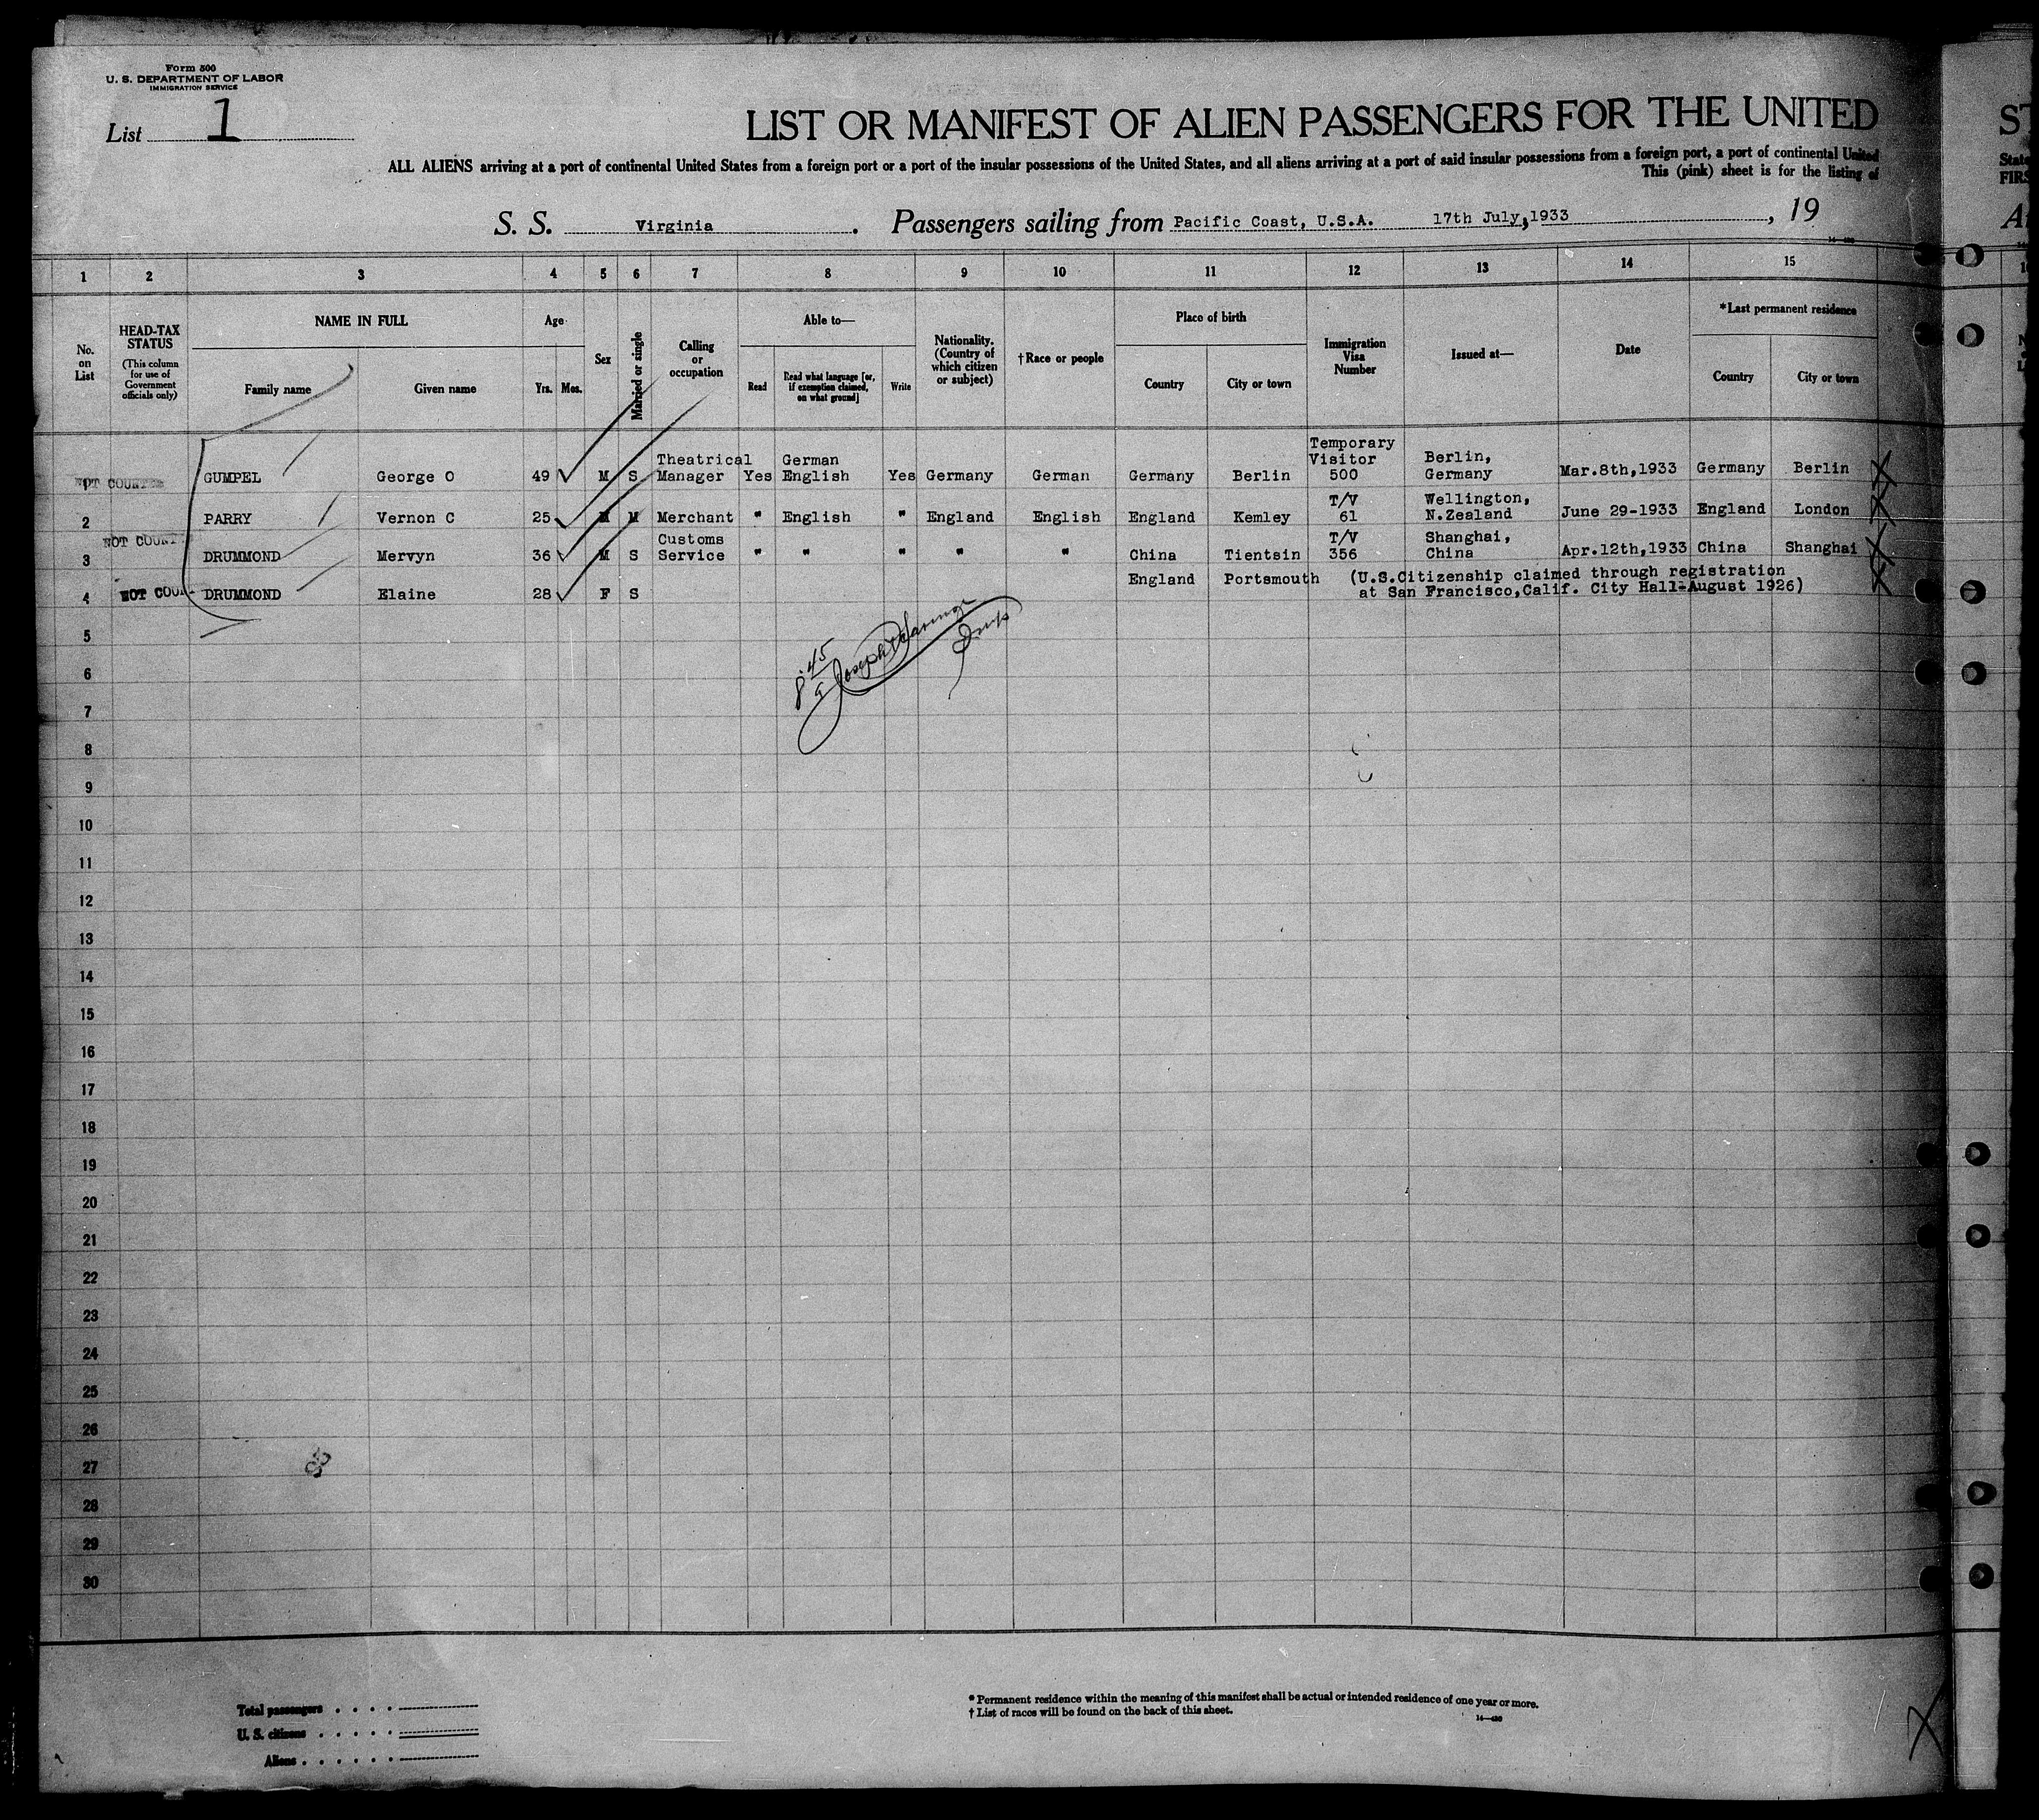 Form 500
U. S. DEPARTMENT OF LABOR
IMMIGRATION SERVICE
List 1
LIST OR MANIFEST OF ALIEN PASSENGERS FOR THE UNITED
ST
ALL ALIENS arriving at a port of continental United States from a foreign port or a port of the insular possessions of the United States, and all aliens arriving at a port of said insular possessions from a foreign port, a port of continental United
State
This (pink) sheet is for the listing of
FIRS
S. S. Virginia. Passengers sailing from Pacific Coast, U.S.A. 17th July, 1933, 19
1 2 3 4 5 6 7 8 9 10 11 12 13 14 15
No. on List
HEAD-TAX STATUS
(This column for use of Government officials only)
NAME IN FULL
Family name Given name
Age
Yrs. Mos.
Sex
Married or single
Calling or occupation
Able to—
Read
Read what language [or, if exemption claimed, on what ground]
Write
Nationality. (Country of which citizen or subject)
†Race or people
Place of birth
Country City or town
Immigration Visa Number
Issued at—
Date
*Last permanent residence
Country City or town
1 NOT COUNTED GUMPEL George O 49 M S Theatrical Manager Yes German English Yes Germany German Germany Berlin Temporary Visitor 500 Berlin, Germany Mar.8th,1933 Germany Berlin
2 PARRY Vernon C 25 M M Merchant " English " England English England Kemley T/V 61 Wellington, N.Zealand June 29-1933 England London
3 NOT COUNT DRUMMOND Mervyn 36 M S Customs Service " " " " " China Tientsin T/V 356 Shanghai, China Apr.12th,1933 China Shanghai
4 NOT COUN DRUMMOND Elaine 28 F S England Portsmouth (U.S.Citizenship claimed through registration
at San Francisco,Calif. City Hall-August 1926)
5
8:45
6
7
8
9
10
11
12
13
14
15
16
17
18
19
20
21
22
23
24
25
26
27
28
29
30
Total passengers
U. S. citizens
Aliens
* Permanent residence within the meaning of this manifest shall be actual or intended residence of one year or more.
† List of races will be found on the back of this sheet.